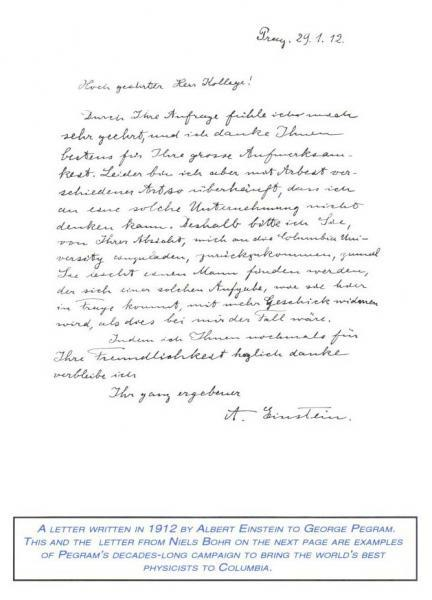 Prag. 29.1.12.
Hoch geehrter Herr Kollege!
Durch Ihre Anfrage fühle ich mich
sehr geehrt, und ich danke Ihnen
bestens für Ihre grosse Aufmerksam-
keit. Leider bin ich aber mit Arbeit ver-
schiedener Art so überhäuft, dass ich
an eine solche Unternehmung nicht
denken kann. Deshalb bitte ich Sie,
von Ihrer Absicht, mich an die Columbia Uni-
versity einzuladen, zurückzukommen, zumal
Sie leicht einen Mann finden werden,
der sich einer solchen Aufgabe, wie sie hier
in Frage kommt, mit mehr Geschick widmen
wird, als dies bei mir der Fall wäre.
Indem ich Ihnen nochmals für
Ihre Freundlichkeit herzlich danke
verbleibe ich
Ihr ganz ergebener
A. Einstein.
A LETTER WRITTEN IN 1912 BY ALBERT EINSTEIN TO GEORGE PEGRAM.
THIS AND THE LETTER FROM NIELS BOHR ON THE NEXT PAGE ARE EXAMPLES
OF PEGRAM'S DECADES-LONG CAMPAIGN TO BRING THE WORLD'S BEST
PHYSICISTS TO COLUMBIA.